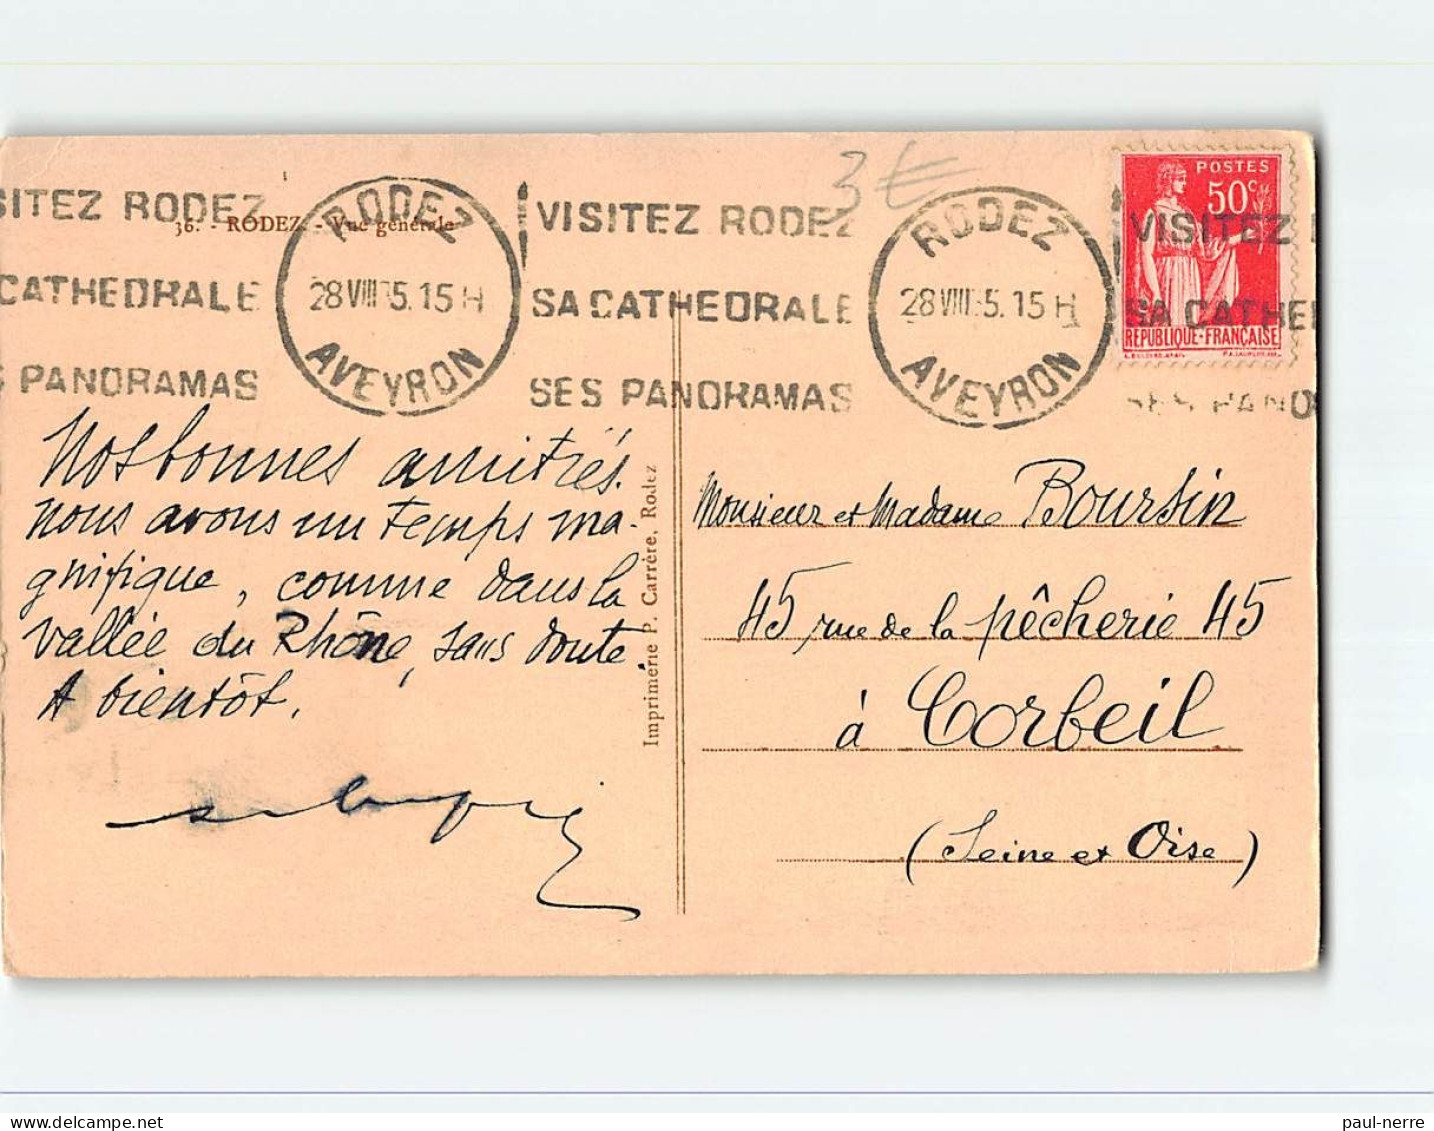 3€
SITEZ RODEZ
CATHEDRALE
S PANORAMAS
36. - RODEZ. - Vue générale
RODEZ
28 VIII 35. 15 H
AVEYRON
VISITEZ RODEZ
SA CATHEDRALE
SES PANORAMAS
RODEZ
28 VIII 35. 15 H
AVEYRON
POSTES
50c
REPUBLIQUE-FRANÇAISE
VISITEZ
SA CATHE
SES PANO
Nos bonnes amitiés.
nous avons un temps ma-
gnifique, comme dans la
vallée du Rhône, sans doute.
A bientôt.
Imprimerie P. Carrère, Rodez
Monsieur et Madame Boursin
45, rue de la pêcherie 45
à Corbeil
(Seine et Oise)
paul-nerre